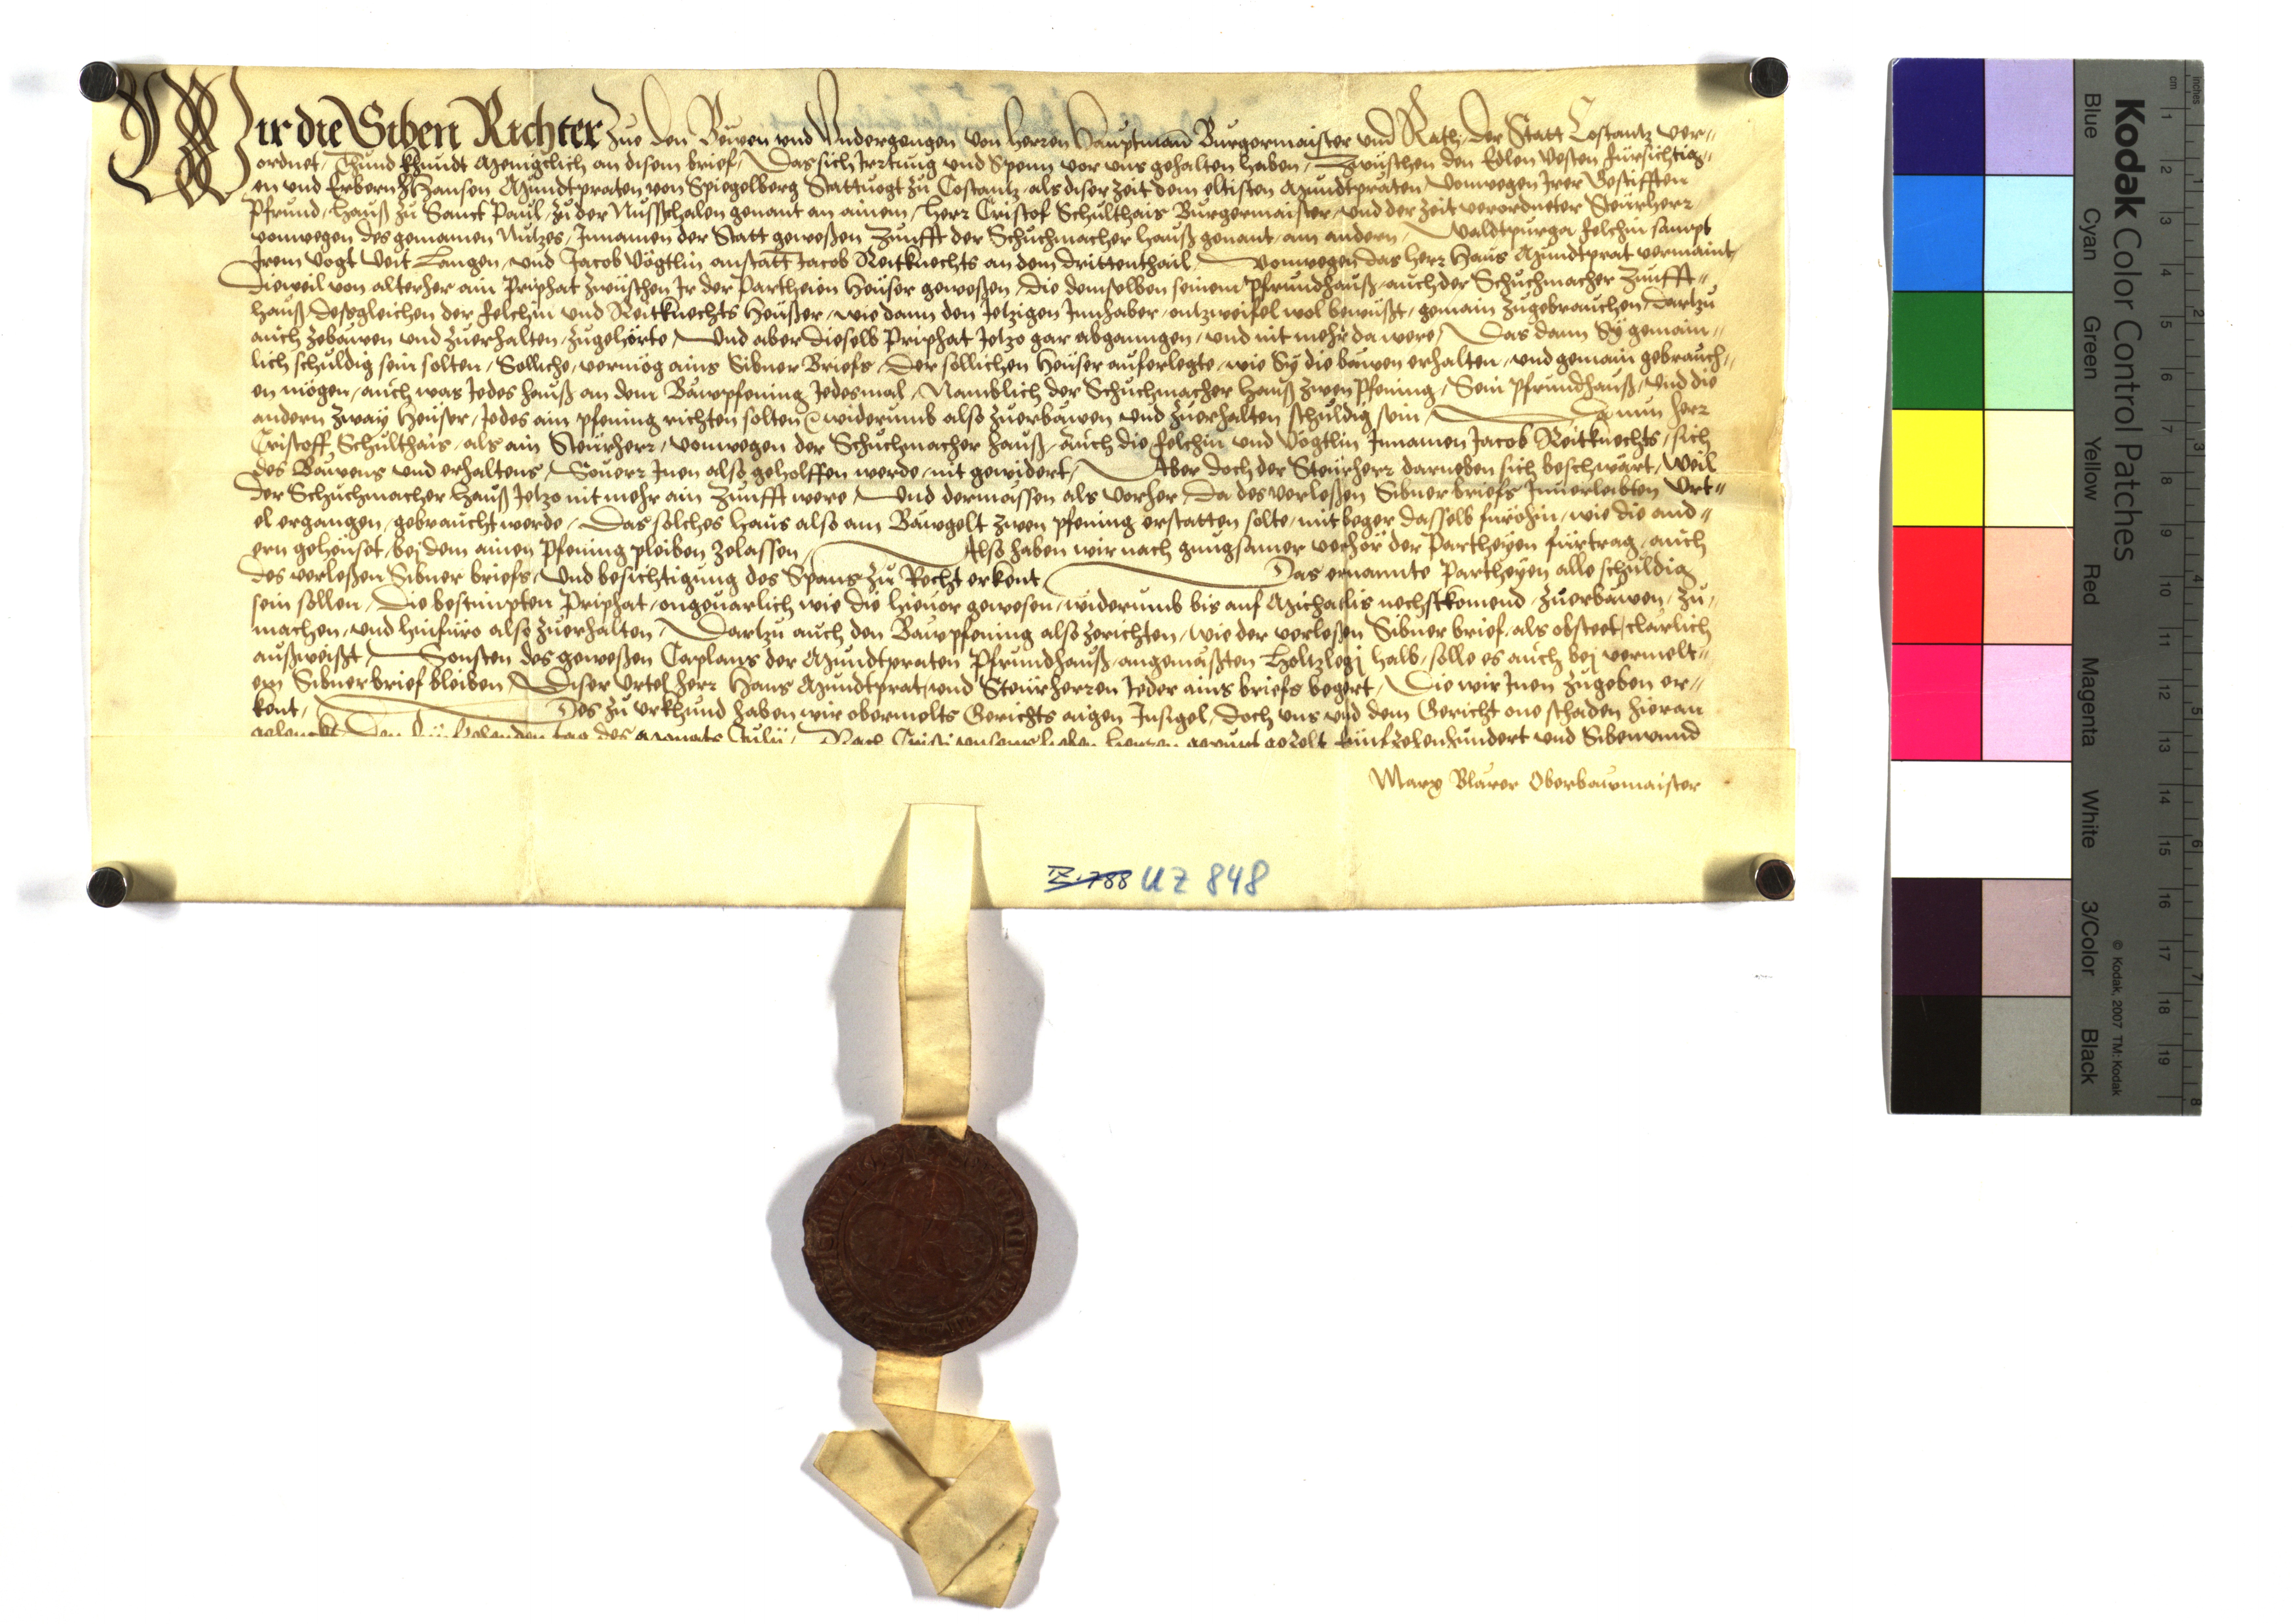 Wir die Siben Richter Zue den Bewen und Undergengen von Herren Hauptmann Burgermaister und Rath, der Statt Costantz ver-
ordnet, Thund khundt Menigclich an disem brief, Das sich Irrtung und Spenn vor uns gehalten haben, Zwüschen den Edlen Vesten fürsichtig-
en und Erbern H Hansen Mundtpraten von Spiegelberg Stattvogt zu Costantz, als diser Zeit dem eltisten Mundtpraten, vonwegen Irer Gestifften
Pfrund, Hauß zu Sanct Paul, zu der Nussschalen genant an ainem, Herr Cristof Schulthais Burgermaister, und der Zeit verordneter Steürherr
vonwegen des gemainen Nutzes, Innamen der Statt geweßen Zunfft der Schuchmacher Hauß genant, am andern, Waldtpurga Felchin sampt
Irem Vogt Veit Langen, und Jacob Vögtlin anstatt Jacob Reitknechts an dem drittenthail, Vonwegen das Herr Hans Mundtprat vermaint,
Dieweil von alterher ain Priphat zwüschen Ir der Partheien Heüser geweßen, die demselben seinem Pfrundhauß, auch der Schuchmacher Zunfft-
hauß, desgleichen der Felchin und Reitknechts Heüßer, wie dann den Jetzigen Innhaber, ontzweifel wol bewüßt, gemain zugebrauchen, dartzu
auch zebawen und zuerhalten, zugehörte, Und aber dieselb Priphat Jetzo gar abganngen, und nit mehr da were, Das dann Sy gemain-
lich schuldig sein solten, Solliche, vermög ains Sibner Briefs, Der söllichen Heüser auferlegte, wie Sy die bawen erhalten, und gemain gebrauch-
en mögen, auch was Jedes hauß an dem Bawpfening Jedesmal, Namblich der Schuchmacher Hauß zwen Pfening, Sein Pfrundhauß, und die
andern zway Heüser, Jedes ain pfening richten solten, widerumb also zuerbawen und zuerhalten schuldig sein, Da nun Herr
Cristoff Schulthais, als ain Steürherr, vonwegen der Schuchmacher Hauß, auch die Felchin und Vögtlin Innamen Jacob Reitknechts, sich
des Bawens und erhaltens, Souerr Inen also geholffen werde, nit gewidert, Aber doch der Steürherr darneben sich beschwärt, weil
der Schuchmacher Hauß Jetzo nit mehr ain Zunfft were, Und dermassen als vorher, Da des verleßen Sibner briefs Innerleibten Urt-
el ergangen, gebraucht werde, Das solches Haus also am Bawgelt zwen pfening erstatten solte, mit beger dasselb fürohin, wie die and-
ern geheüset, bej dem ainen Pfening pleiben zelassen, Also haben wir nach gnugsamer verhör der Partheyen fürtrag, auch
des verleßen Sibner briefs, Und besichtigung des Spans zu Recht erkent, Das ernannte Partheyen alle schuldig
sein sollen, Die bestimpten Priphat, ongeuarlich wie die hieuor gewesen, widerumb bis auf Michaelis nechstkomend, zuerbawen, zu-
machen, und hinfüro also zuerhalten, Dartzu auch den Bawpfening also zerichten, wie der verleßen Sibner brief, als obsteet, clarlich
außweißt, Sonsten des geweßen Caplans der Mundtpraten Pfrundhauß, angemaßten Holtzlegj halb, sölle es auch bej vermelt-
em Sibner brief bleiben, Diser Urtel Herr Hans Mundtprat, und Steürherren Jeder ains briefs begert, Die wir Inen zugeben er-
kent, Des zu Urkhund haben wir obermelts Gerichts aigen Insigel, doch uns und dem Gericht one schaden hieran
gehenckt, Den tag des Monats Julij, Nach Cristi unsers lieben Herren gepurt gezelt fünfzehenhundert und Sibenund
Marx Blarer Oberbawmaister
IX. 788 UZ 848
Kodak Color Control Patches
Blue Cyan Green Yellow Red Magenta White 3/Color Black
© Kodak, 2007 TM: Kodak
cm 1 2 3 4 5 6 7 8 9 10 11 12 13 14 15 16 17 18 19
inches 1 2 3 4 5 6 7 8